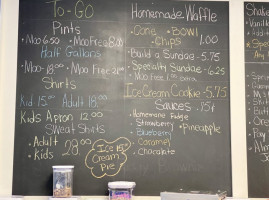 To-GO
Pints
Moo 6.50 Moo Free 8.00
Half Gallons
Moo-18.00 Moo Free 21.00
Shirts
Kid 15.00 Adult 18.00
Kids Apron 12.00
Sweat Shirts
Adult
Kids 28.00
Ice 15.00
Cream
Pie
Homemade Waffle
Cone Bowl
Chips 1.00
Build a Sundae - 5.75
Specialty Sundae - 6.25
Moo Free
Ice Cream Cookie - 5.75
Sauces .75¢
Homemade Fudge
Strawberry
Blueberry Pineapple
Caramel
Chocolate